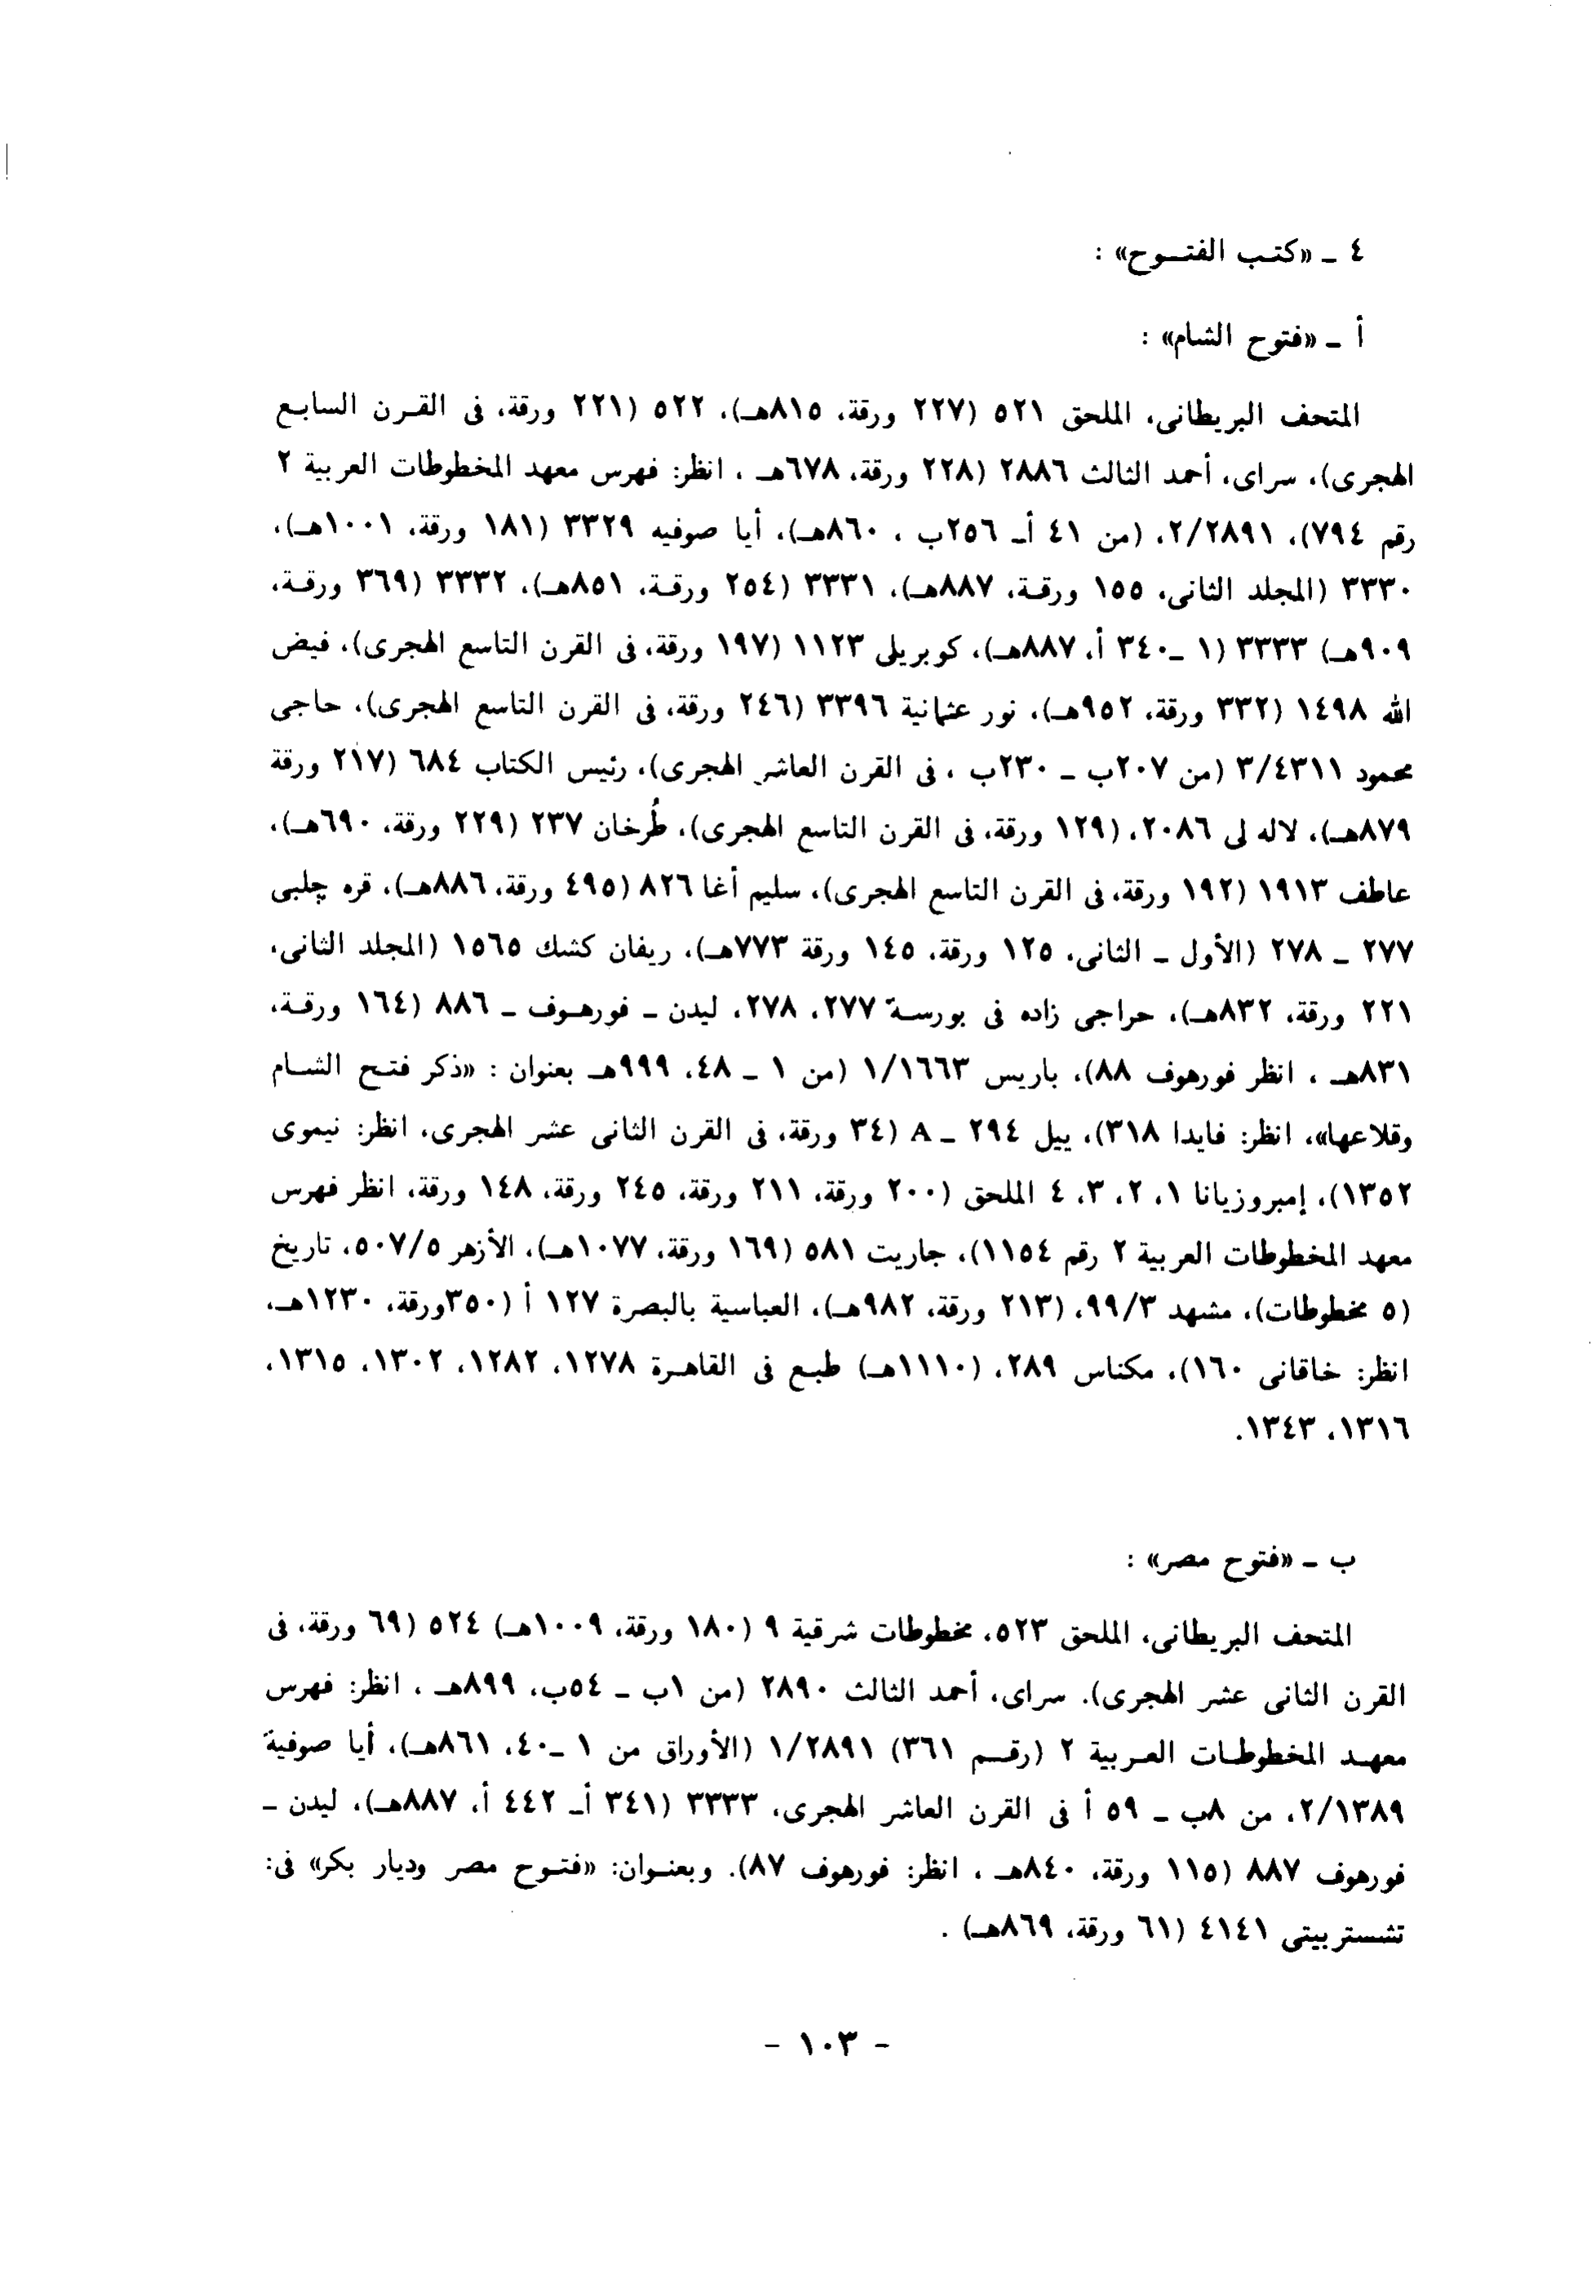 ٤ ـ «كتب الفتوح» :
أ ـ «فتوح الشام» :
المتحف البريطانى، الملحق ٥٢١ (٢٢٧ ورقة، ٨١٥هـ)، ٥٢٢ (٢٢١ ورقة، فى القرن السابع
الهجرى)، سراى، أحمد الثالث ٢٨٨٦ (٢٢٨ ورقة، ٦٧٨هـ ، انظر: فهرس معهد المخطوطات العربية ٢
رقم ٧٩٤)، ٢/٢٨٩١، (من ٤١ أـ ٢٥٦ب ، ٨٦٠هـ)، أيا صوفيه ٣٣٢٩ (١٨١ ورقة، ١٠٠١هـ)،
٣٣٣٠ (المجلد الثانى، ١٥٥ ورقة، ٨٨٧هـ)، ٣٣٣١ (٢٥٤ ورقة، ٨٥١هـ)، ٣٣٣٢ (٣٦٩ ورقة،
٩٠٩هـ) ٣٣٣٣ (١ ـ٣٤٠ أ، ٨٨٧هـ)، كوبريلى ١١٢٣ (١٩٧ ورقة، فى القرن التاسع الهجرى)، فيض
الله ١٤٩٨ (٣٣٢ ورقة، ٩٥٢هـ)، نور عثمانية ٣٣٩٦ (٢٤٦ ورقة، فى القرن التاسع الهجرى)، حاجى
محمود ٣/٤٣١١ (من ٢٠٧ب ـ ٢٣٠ب ، فى القرن العاشر الهجرى)، رئيس الكتاب ٦٨٤ (٢١٧ ورقة
٨٧٩هـ)، لاله لى ٢٠٨٦، (١٢٩ ورقة، فى القرن التاسع الهجرى)، طُرخان ٢٣٧ (٢٢٩ ورقة، ٦٩٠هـ)،
عاطف ١٩١٣ (١٩٢ ورقة، فى القرن التاسع الهجرى)، سليم أغا ٨٢٦ (٤٩٥ ورقة، ٨٨٦هـ)، قره چلبى
٢٧٧ ـ ٢٧٨ (الأول ـ الثانى، ١٢٥ ورقة، ١٤٥ ورقة ٧٧٣هـ)، ريفان كشك ١٥٦٥ (المجلد الثانى،
٢٢١ ورقة، ٨٣٢هـ)، حراجى زاده فى بورسة ٢٧٧، ٢٧٨، ليدن ـ فورهوف ـ ٨٨٦ (١٦٤ ورقة،
٨٣١هـ ، انظر فورهوف ٨٨)، باريس ١/١٦٦٣ (من ١ ـ ٤٨، ٩٩٩هـ بعنوان : «ذكر فتح الشام
وقلاعها»، انظر: فايدا ٣١٨)، ييل ٢٩٤ ـ A (٣٤ ورقة، فى القرن الثانى عشر الهجرى، انظر: نيموى
١٣٥٢)، إمبروزيانا ١، ٢، ٣، ٤ الملحق (٢٠٠ ورقة، ٢١١ ورقة، ٢٤٥ ورقة، ١٤٨ ورقة، انظر فهرس
معهد المخطوطات العربية ٢ رقم ١١٥٤)، جاريت ٥٨١ (١٦٩ ورقة، ١٠٧٧هـ)، الأزهر ٥٠٧/٥، تاريخ
(٥ مخطوطات)، مشهد ٩٩/٣، (٢١٣ ورقة، ٩٨٢هـ)، العباسية بالبصرة ١٢٧ أ (٣٥٠ورقة، ١٢٣٠هـ،
انظر: خاقانى ١٦٠)، مكناس ٢٨٩، (١١١٠هـ) طبع فى القاهرة ١٢٧٨، ١٢٨٢، ١٣٠٢، ١٣١٥،
١٣١٦، ١٣٤٣.
ب ـ «فتوح مصر» :
المتحف البريطانى، الملحق ٥٢٣، مخطوطات شرقية ٩ (١٨٠ ورقة، ١٠٠٩هـ) ٥٢٤ (٦٩ ورقة، فى
القرن الثانى عشر الهجرى). سراى، أحمد الثالث ٢٨٩٠ (من ١ب ـ ٥٤ب، ٨٩٩هـ ، انظر: فهرس
معهد المخطوطات العربية ٢ (رقم ٣٦١) ١/٢٨٩١ (الأوراق من ١ ـ٤٠، ٨٦١هـ)، أيا صوفية
٢/١٣٨٩، من ٨ب ـ ٥٩ أ فى القرن العاشر الهجرى، ٣٣٣٣ (٣٤١ أـ ٤٤٢ أ، ٨٨٧هـ)، ليدن ـ
فورهوف ٨٨٧ (١١٥ ورقة، ٨٤٠هـ ، انظر: فورهوف ٨٧). وبعنوان: «فتوح مصر وديار بكر» فى:
تشستربيتى ٤١٤١ (٦١ ورقة، ٨٦٩هـ) .
- ١٠٣ -